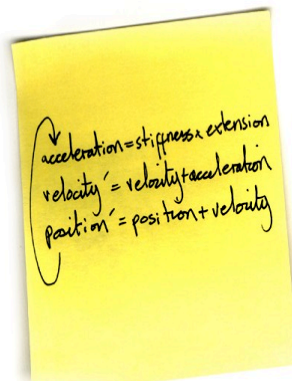 acceleration = stiffness x extension
velocity' = velocity + acceleration
position' = position + velocity